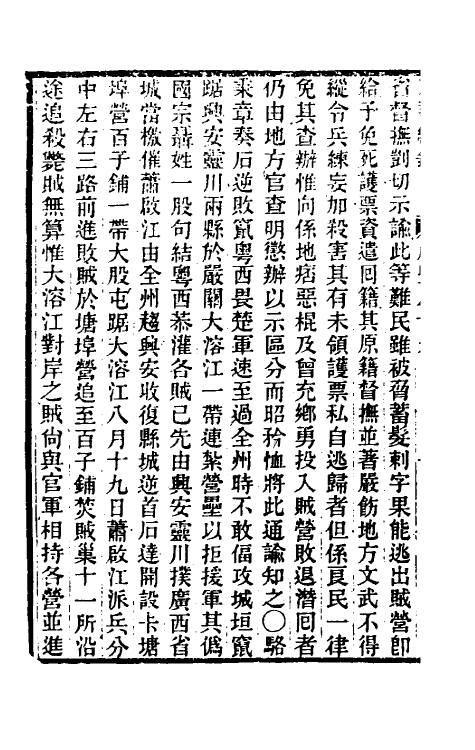 省督撫剴切示諭此等難民雖被脅蓄髮刺字果能逃出賊營即
給予免死護票資遣囘籍其原籍督撫並著嚴飭地方文武不得
縱令兵練妄加殺害其有未領護票私自逃歸者但係良民一律
免其查辦惟向係地痞惡棍及曾充鄉勇投入賊營敗退潛囘者
仍由地方官查明懲辦以示區分而昭矜恤將此通諭知之〇駱
秉章奏石逆敗竄粵西畏楚軍速至過全州時不敢偪攻城垣竄
踞興安靈川兩縣於嚴關大溶江一帶連紮營壘以拒援軍其僞
國宗聶姓一股句結粵西恭灌各賊已先由興安靈川撲廣西省
城當檄催蕭啟江由全州趨興安收復縣城逆首石達開設卡塘
埠營百子鋪一帶大股屯踞大溶江八月十九日蕭啟江派兵分
中左右三路前進敗賊於塘埠營追至百子鋪焚賊巢十一所沿
途追殺斃賊無算惟大溶江對岸之賊尙與官軍相持各營並進